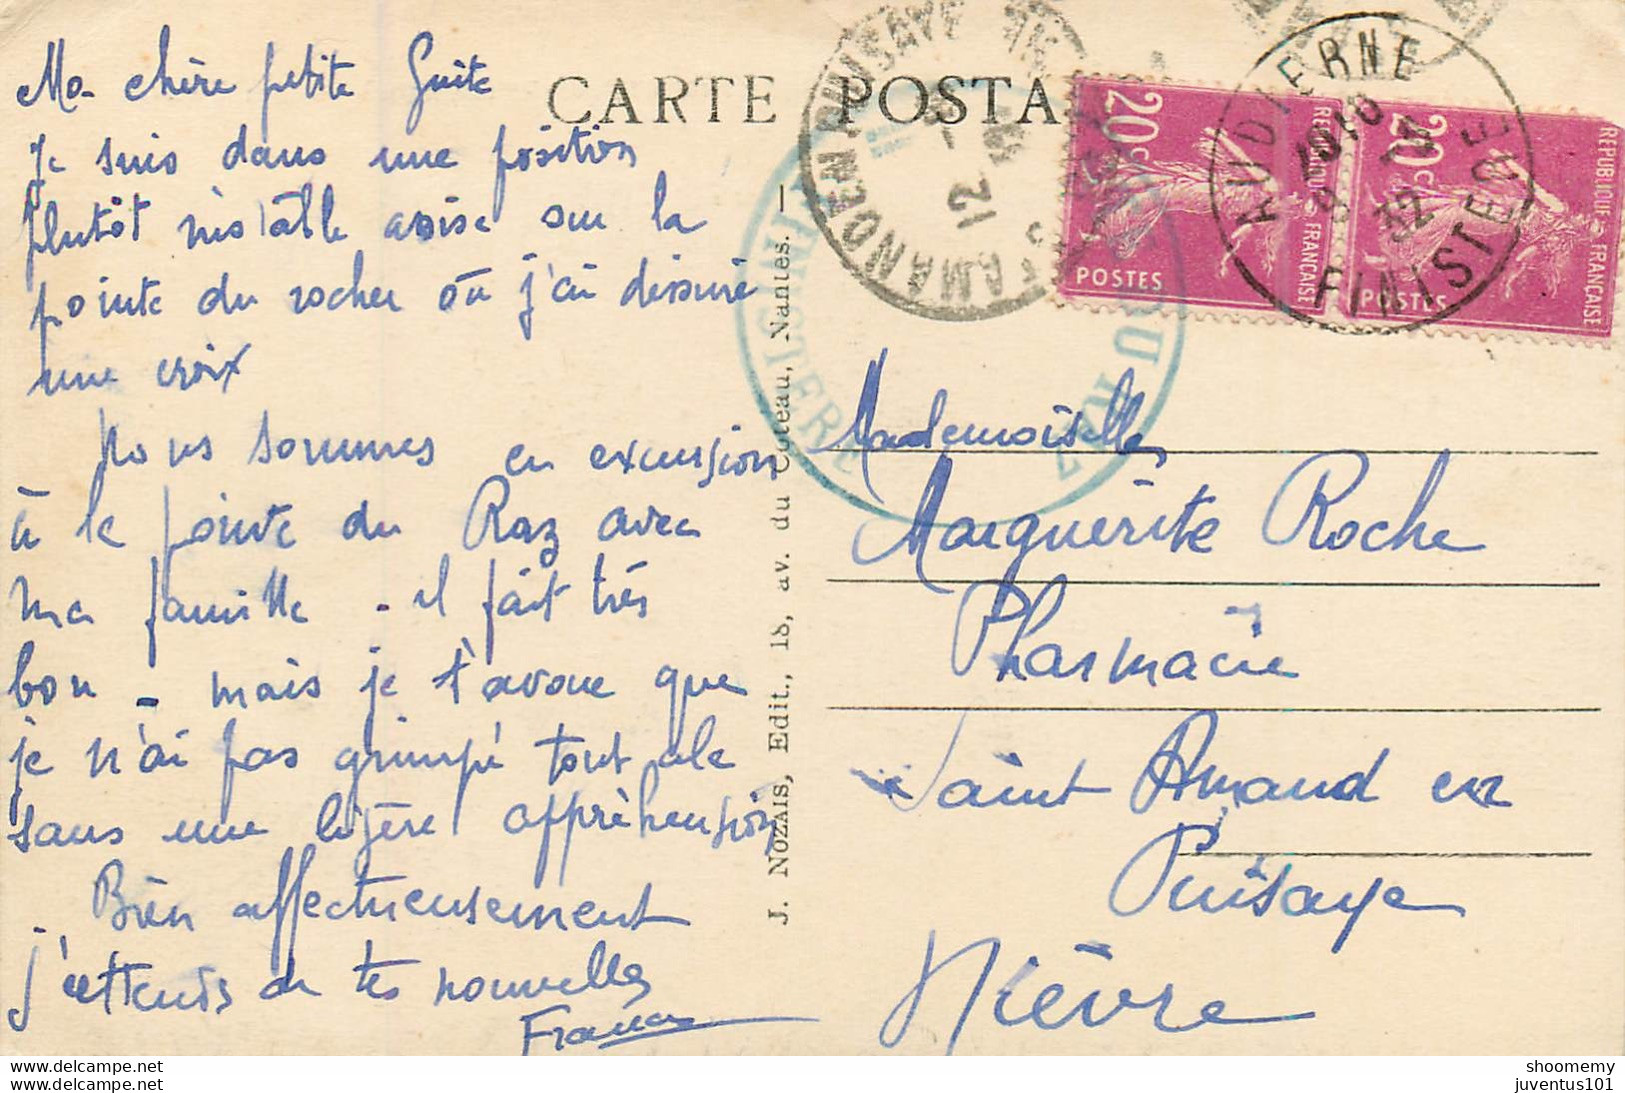 Ma chère petite Guite
Je suis dans une position
plutôt instable assise sur la
pointe du rocher où j'ai dessiné
une croix
Nous sommes en excursion
à la pointe du Raz avec
ma famille - il fait très
bon - mais je t'avoue que
je n'ai pas grimpé tout cela
sans une légère appréhension
Bien affectueusement
j'attends de tes nouvelles
CARTE POSTA
J. NOZAIS, Edit., 18, av. du Coteau, Nantes. —
AMAND EN PUISAYE
12
FINISTERE
DU RAZ
20c
POSTES
REPUBLIQUE FRANÇAISE
20c
POSTES
REPUBLIQUE FRANÇAISE
AUDIERNE
FINISTERE
Mademoiselle
Marguérite Roche
Pharmacie
Saint Amand en
Puisaye
Nièvre
shoomemy
juventus101